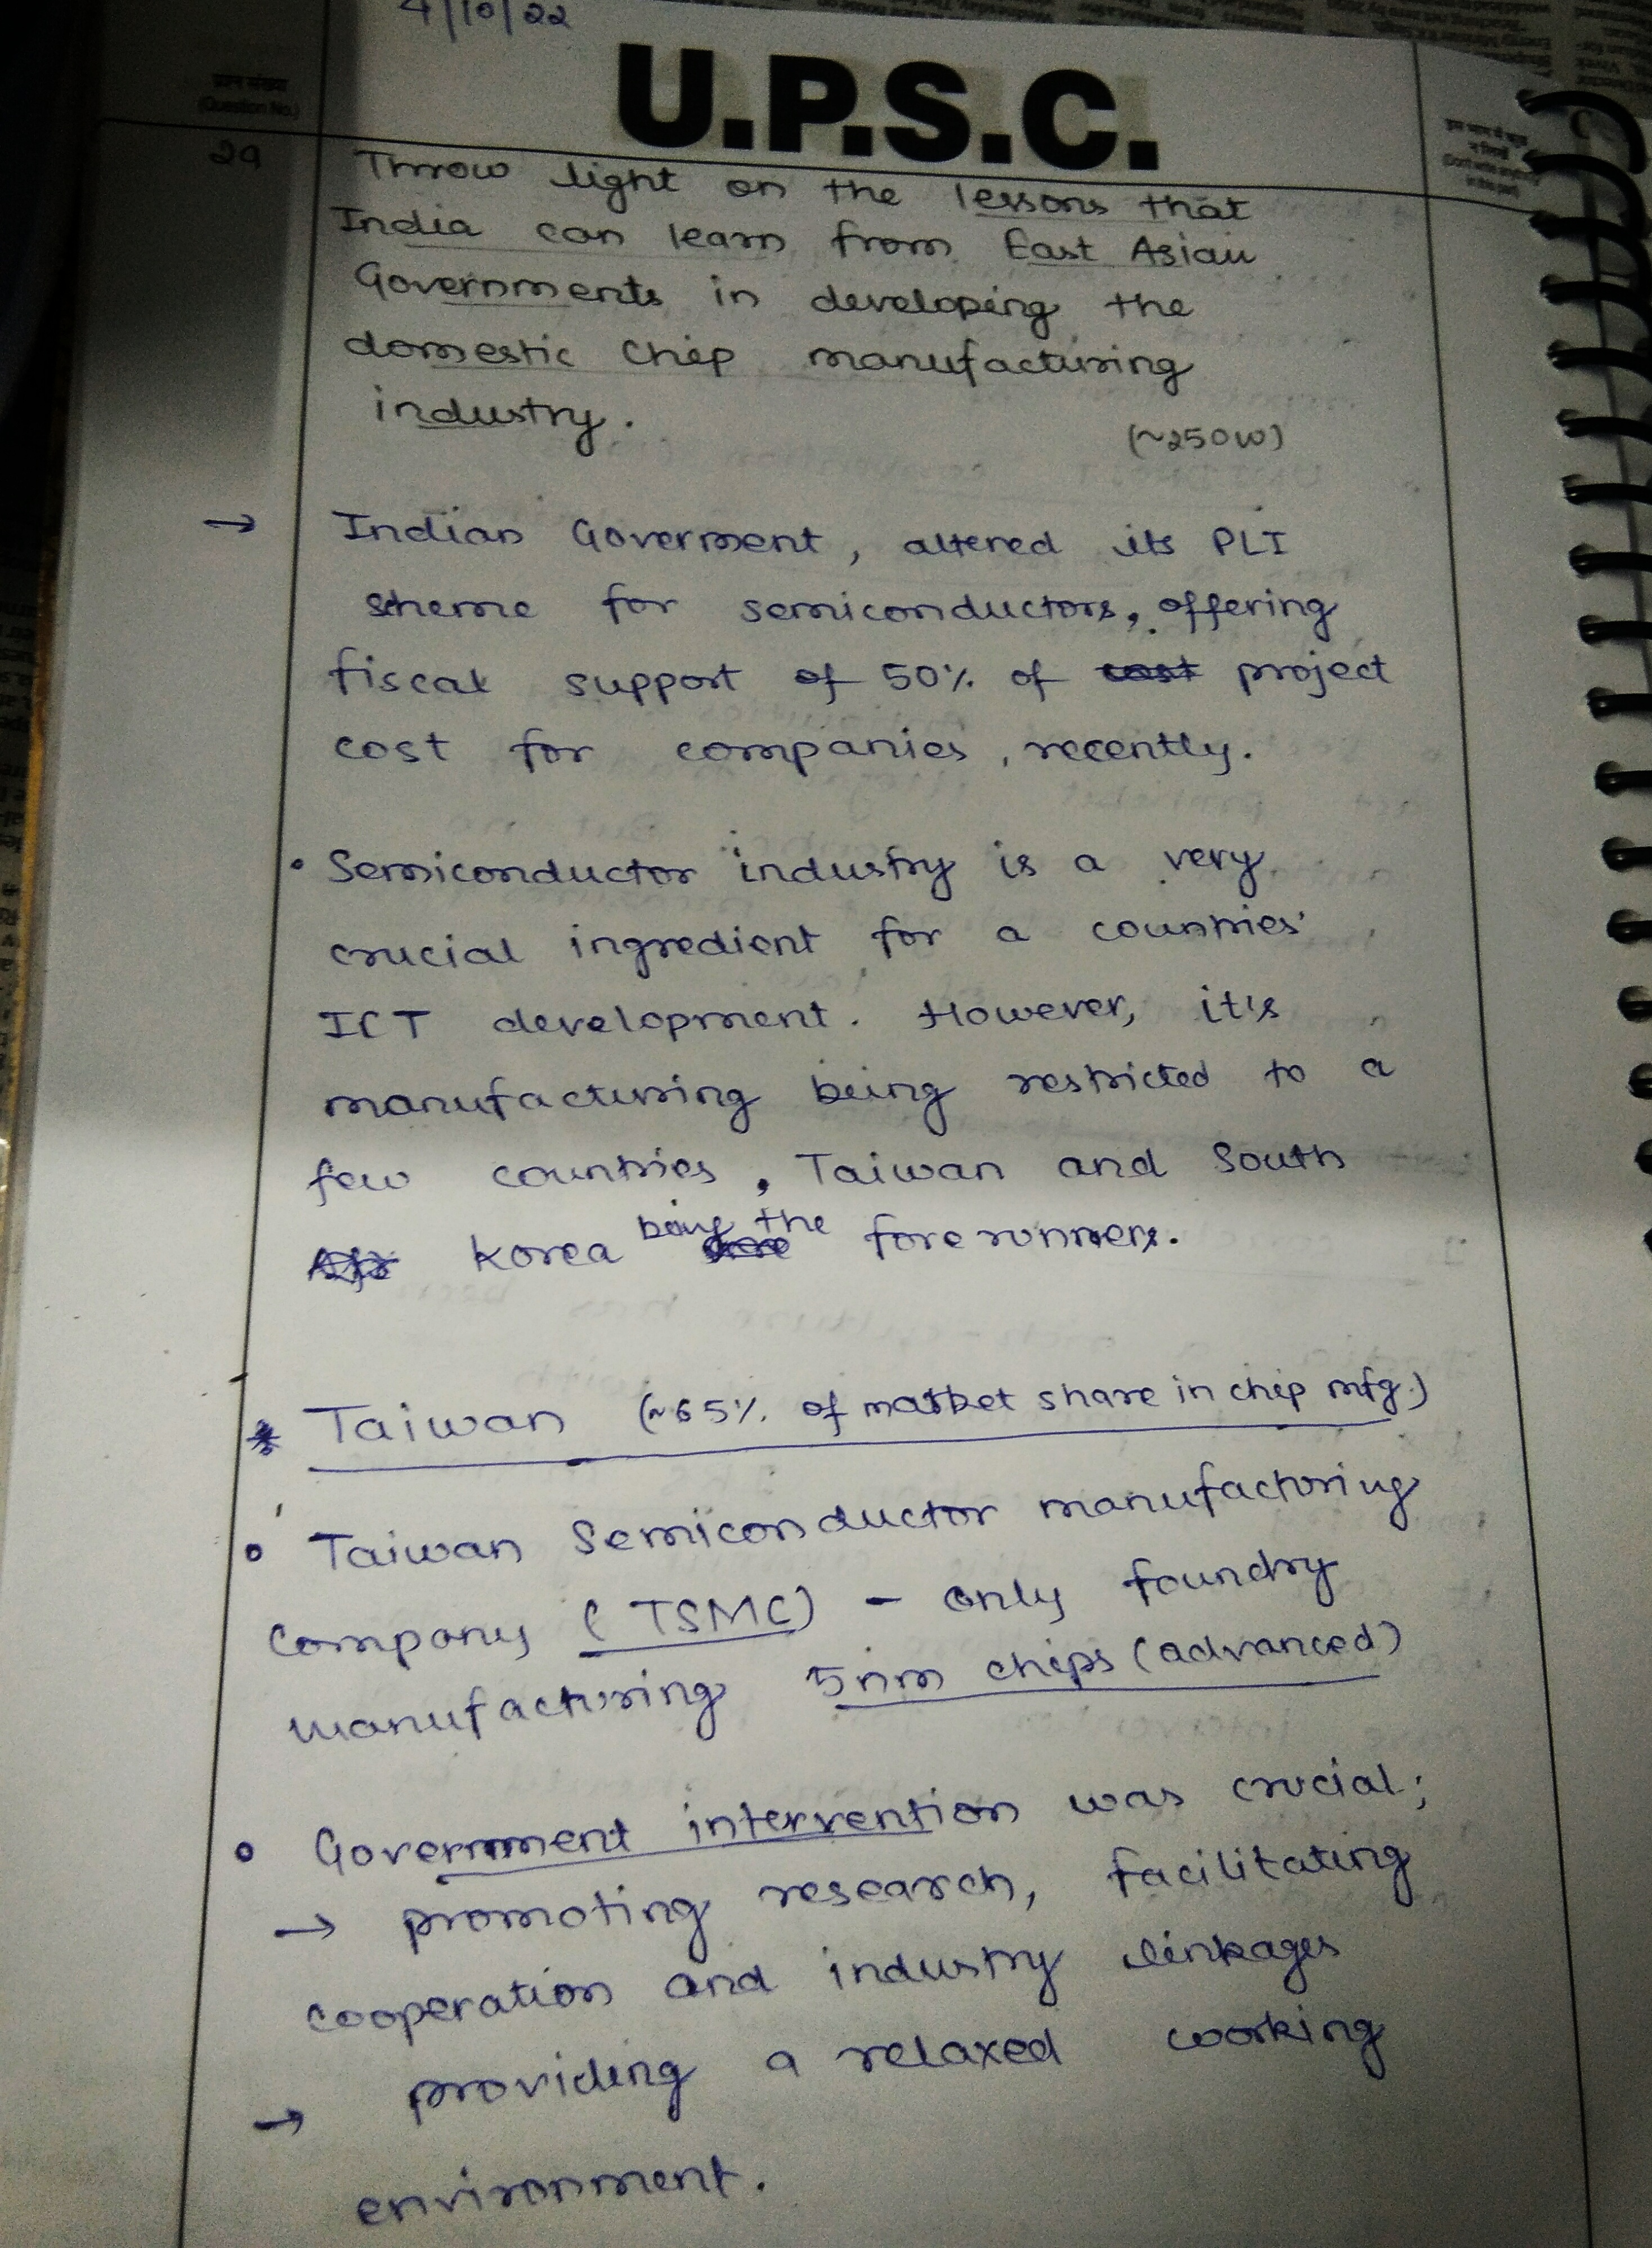 4/10/22
U.P.S.C.
प्रश्न संख्या
(Question No.)
29
Throw light on the lessons that
India can learn from East Asian
Governments in developing the
domestic chip manufacturing
industry.
(~250W)
→ Indian Goverment, altered its PLI
scheme for semiconductors, offering
fiscal support of 50% of cost project
cost for companies, recently.
• Semiconductor industry is a very
crucial ingredient for a countries'
ICT development. However, it's
manufacturing being restricted to a
few countries, Taiwan and South
Korea being the forerunners.
* Taiwan (~65% of market share in chip mfg.)
• Taiwan Semiconductor manufacturing
company (TSMC) - only foundry
manufacturing 5nm chips (advanced)
• Government intervention was crucial;
→ promoting research, facilitating
cooperation and industry linkages
→ providing a relaxed working
environment.